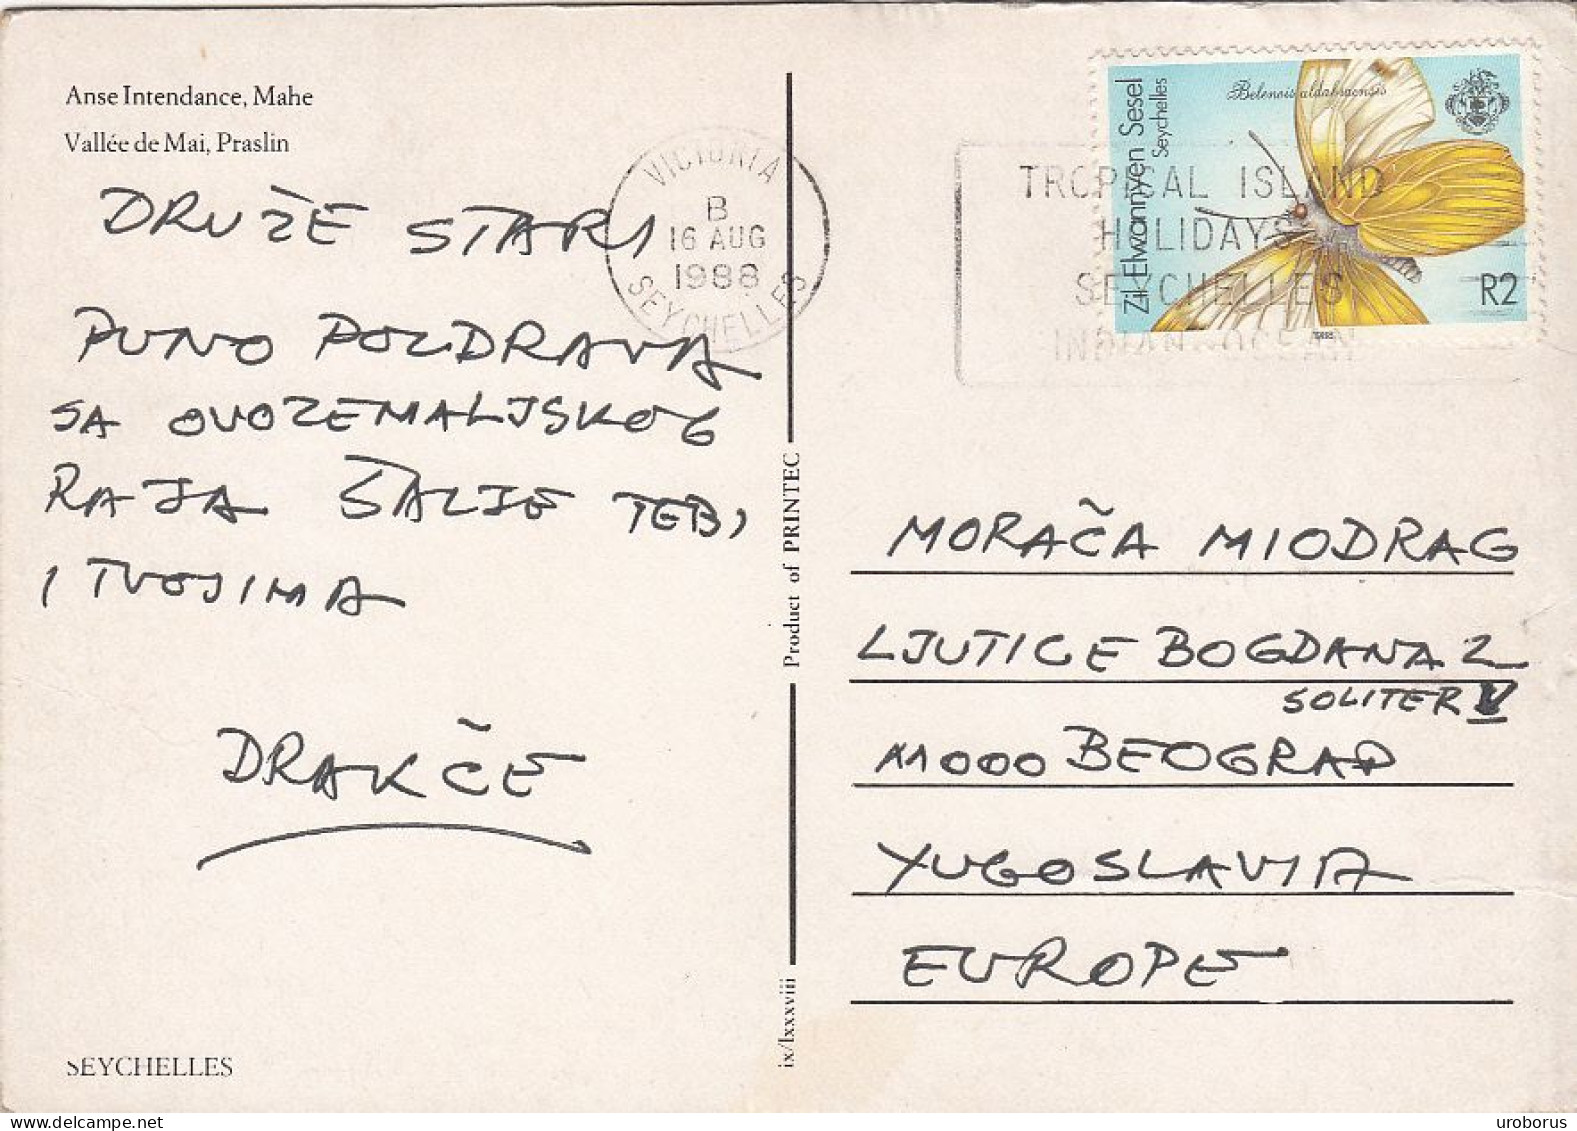 Anse Intendance, Mahe
Vallée de Mai, Praslin
DRUŽE STARI
PUNO POZDRAVA
SA OVOZEMALJSKOG
RAJA ŠALJE TEBI
I TVOJIMA
DRAKČE
SEYCHELLES
VICTORIA
B
16 AUG
1988
SEYCHELLES
Product of PRINTEC
ix/lxxxviii
TROPICAL ISLAND
HOLIDAYS
SEYCHELLES
INDIAN OCEAN
Zil Elwannyen Sesel
Seychelles
Belenois aldabraensis
R2
1988
MORAČA MIODRAG
LJUTICE BOGDANA 2
SOLITER V
11000 BEOGRAD
YUGOSLAVIA
EUROPE
uroborus